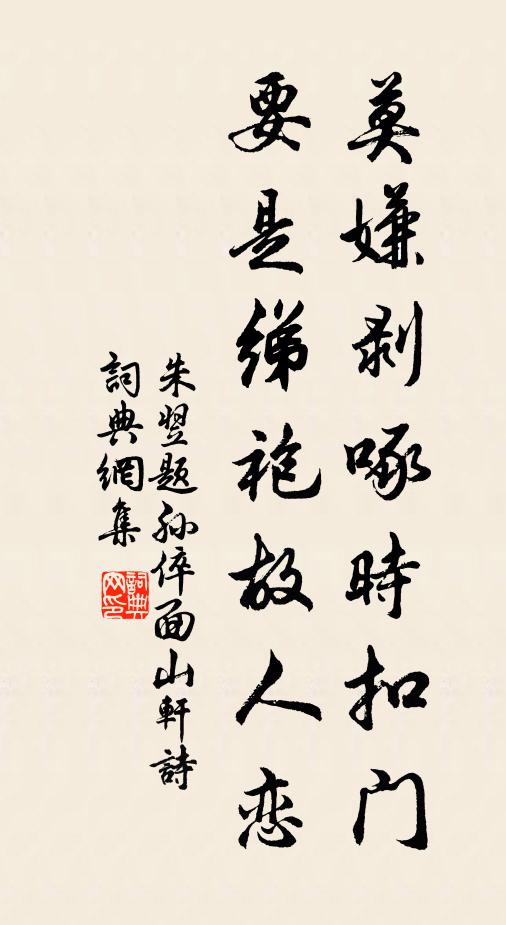 莫嫌剥啄時扣门
要是绨袍故人恋
朱翌题孙倅面山軒詩
詞典網集
詞典网印